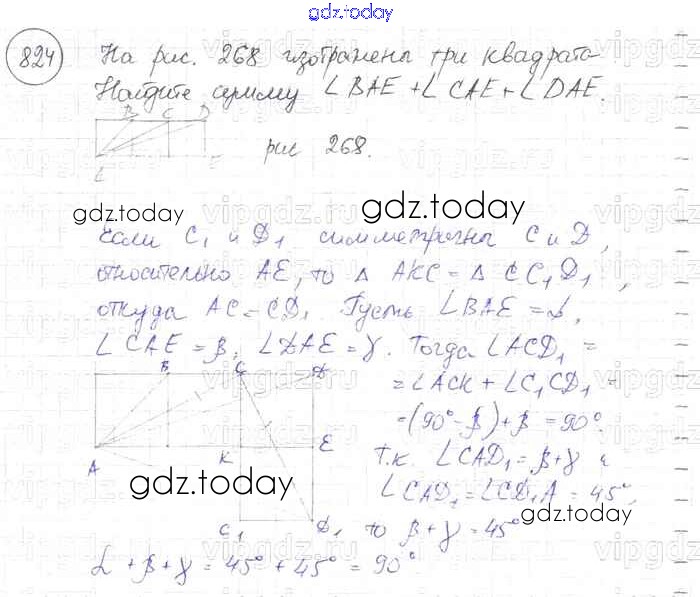 gdz.today
824 На рис. 268 изображены три квадрата
Найдите сумму ∠BAE + ∠CAE + ∠DAE.
B C D
A E
рис 268.
gdz.today gdz.today
Если C₁ и D₁ симметричны C и D,
относительно AE, то Δ AKC = Δ CC₁D₁,
откуда AC = CD₁. Пусть ∠BAE = α,
∠CAE = β, ∠DAE = γ. Тогда ∠ACD₁ =
= ∠ACK + ∠C₁CD₁ =
= (90° - β) + β = 90°.
Т.к. ∠CAD₁ = β + γ и
∠CAD₁ = ∠CD₁A = 45°,
то β + γ = 45°
B C D
A K E
C₁ D₁
gdz.today gdz.today
α + β + γ = 45° + 45° = 90°